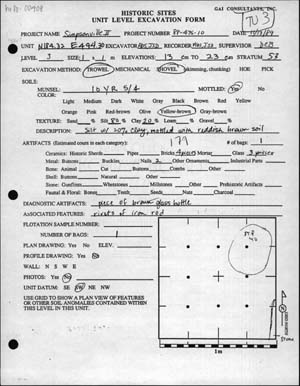 GAI CONSULTANTS, INC.
TU 3
HISTORIC SITES
UNIT LEVEL EXCAVATION FORM
PROJECT NAME Simpsonville II PROJECT # 89-476-10
EXCAVATOR RECORDER SUPERVISOR DCB
LEVEL 3 SIZE 1 x 1 m ELEVATIONS: 13 CM TO 23 cm STRATUM:
EXCAVATION METHOD: TROWEL MECHANICAL SHOVEL (skimming, chunking) HOE PICK
SOILS:
MUNSEL: 10 YR 5/4 MOTTLED: YES NO
COLOR: Light Medium Dark White Gray Black Brown Red Yellow
Orange Pink Red-brown Olive Yellow-brown Gray-brown
TEXTURE: Sand % Silt 80 % Clay 20 % Loam % Gravel %
DESCRIPTION: Silt w/ 20% clay, mottled with reddish brown soil
ARTIFACTS (Estimated count in each category): 179 # of bags: 1
Ceramics: Historic Sherds Pipes Bricks Mortar Glass
Metal: Buttons Buckles Nails 2 Other Ornaments Industrial Parts
Bone: Animal Cut Buttons Combs Other
Wood: Buttons Other
Stone: Gunflints Whetstones Millstones Other Prehistoric Artifacts
Faunal & Floral: Bones Teeth Seeds Nuts Charcoal
DIAGNOSTIC ARTIFACTS: piece of brown glass bottle
ASSOCIATED FEATURES: of iron rod
FLOTATION SAMPLE NUMBER:
NUMBER OF BAGS: 1
PLAN DRAWING: YES NO ELEV.
PROFILE DRAWING: YES NO
WALL: N S W E
PHOTOS: YES NO
UNIT DATUM: SE SW NE NW
USE GRID TO SHOW A PLAN VIEW OF FEATURES
OR OTHER SOIL ANOMALIES CONTAINED WITHIN
THIS LEVEL IN THIS UNIT.
1m